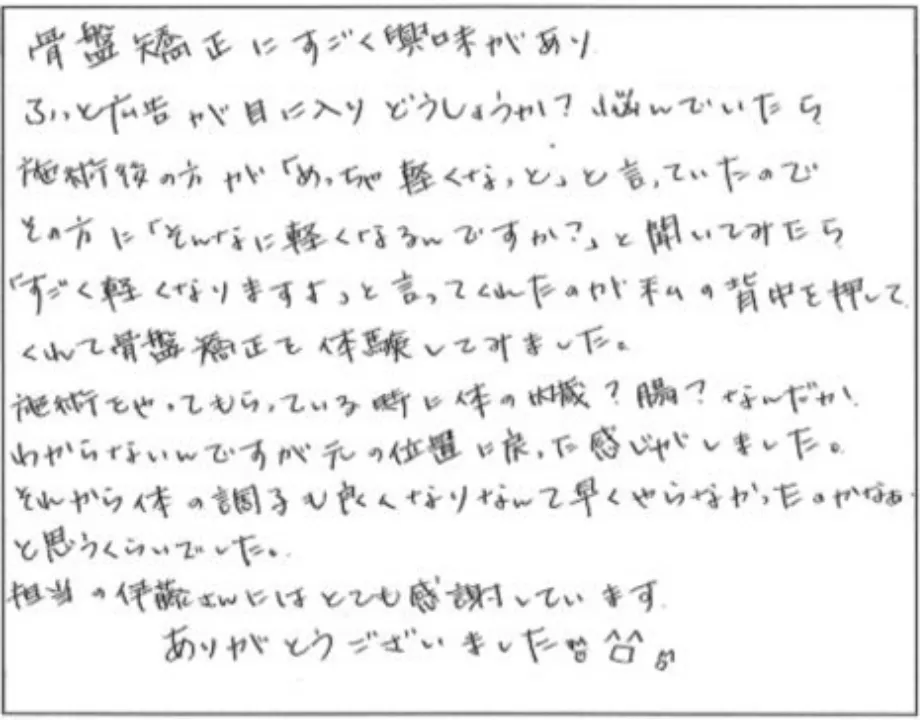 骨盤矯正にすごく興味があり
ふっと広告が目に入りどうしょうか?悩んでいたら
施術後の方が「めっちゃ軽くなっと」と言っていたので
その方に「そんなに軽くなるんですか?」と聞いてみたら
「すごく軽くなりますよ」と言ってくれたのが私の背中を押して
くれて骨盤矯正を体験してみました。
施術をやってもらっている時に体の内臓?腸?なんだか
わからないんですが元の位置に戻った感じがしました。
それから体の調子も良くなりなんて早くやらなかったのかなぁ
と思うくらいでした。
担当の伊藤さんにはとても感謝しています
ありがとうございました